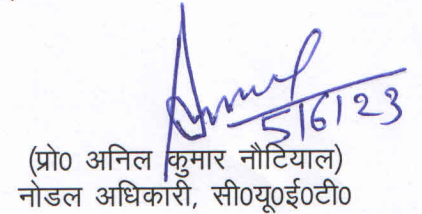 5/6/23
(प्रो0 अनिल कुमार नौटियाल)
नोडल अधिकारी, सी0यू0ई0टी0